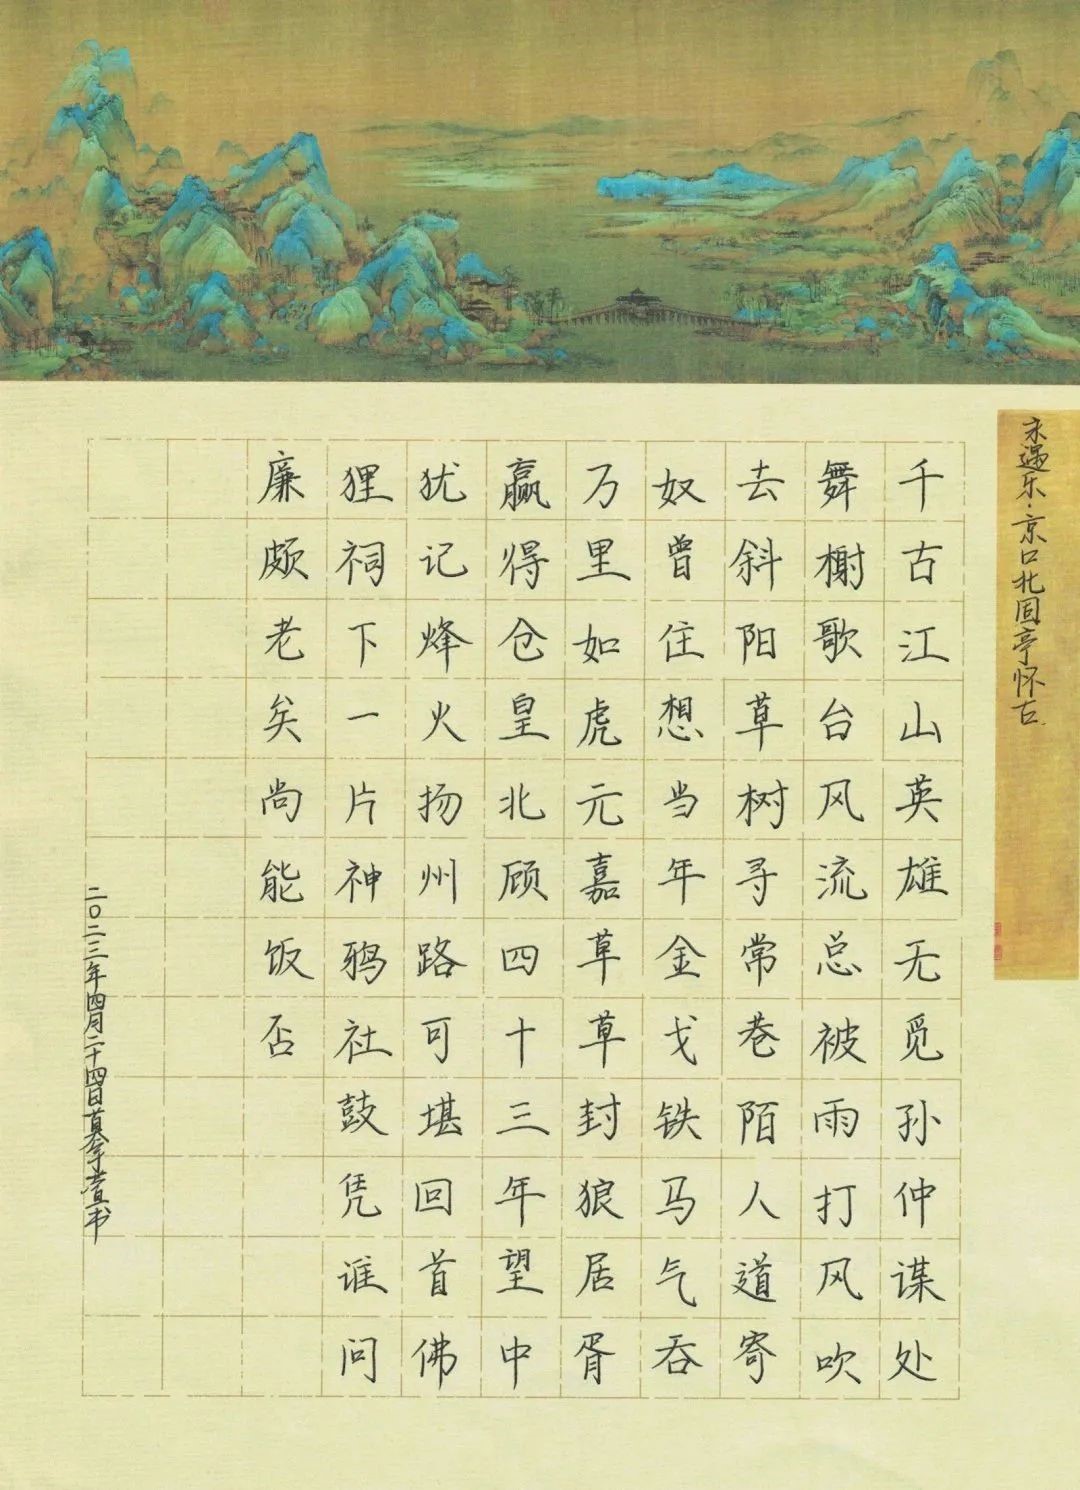 永遇乐·京口北固亭怀古
千古江山英雄无觅孙仲谋处
舞榭歌台风流总被雨打风吹
去斜阳草树寻常巷陌人道寄
奴曾住想当年金戈铁马气吞
万里如虎元嘉草草封狼居胥
赢得仓皇北顾四十三年望中
犹记烽火扬州路可堪回首佛
狸祠下一片神鸦社鼓凭谁问
廉颇老矣尚能饭否
二〇二三年四月二十四日书